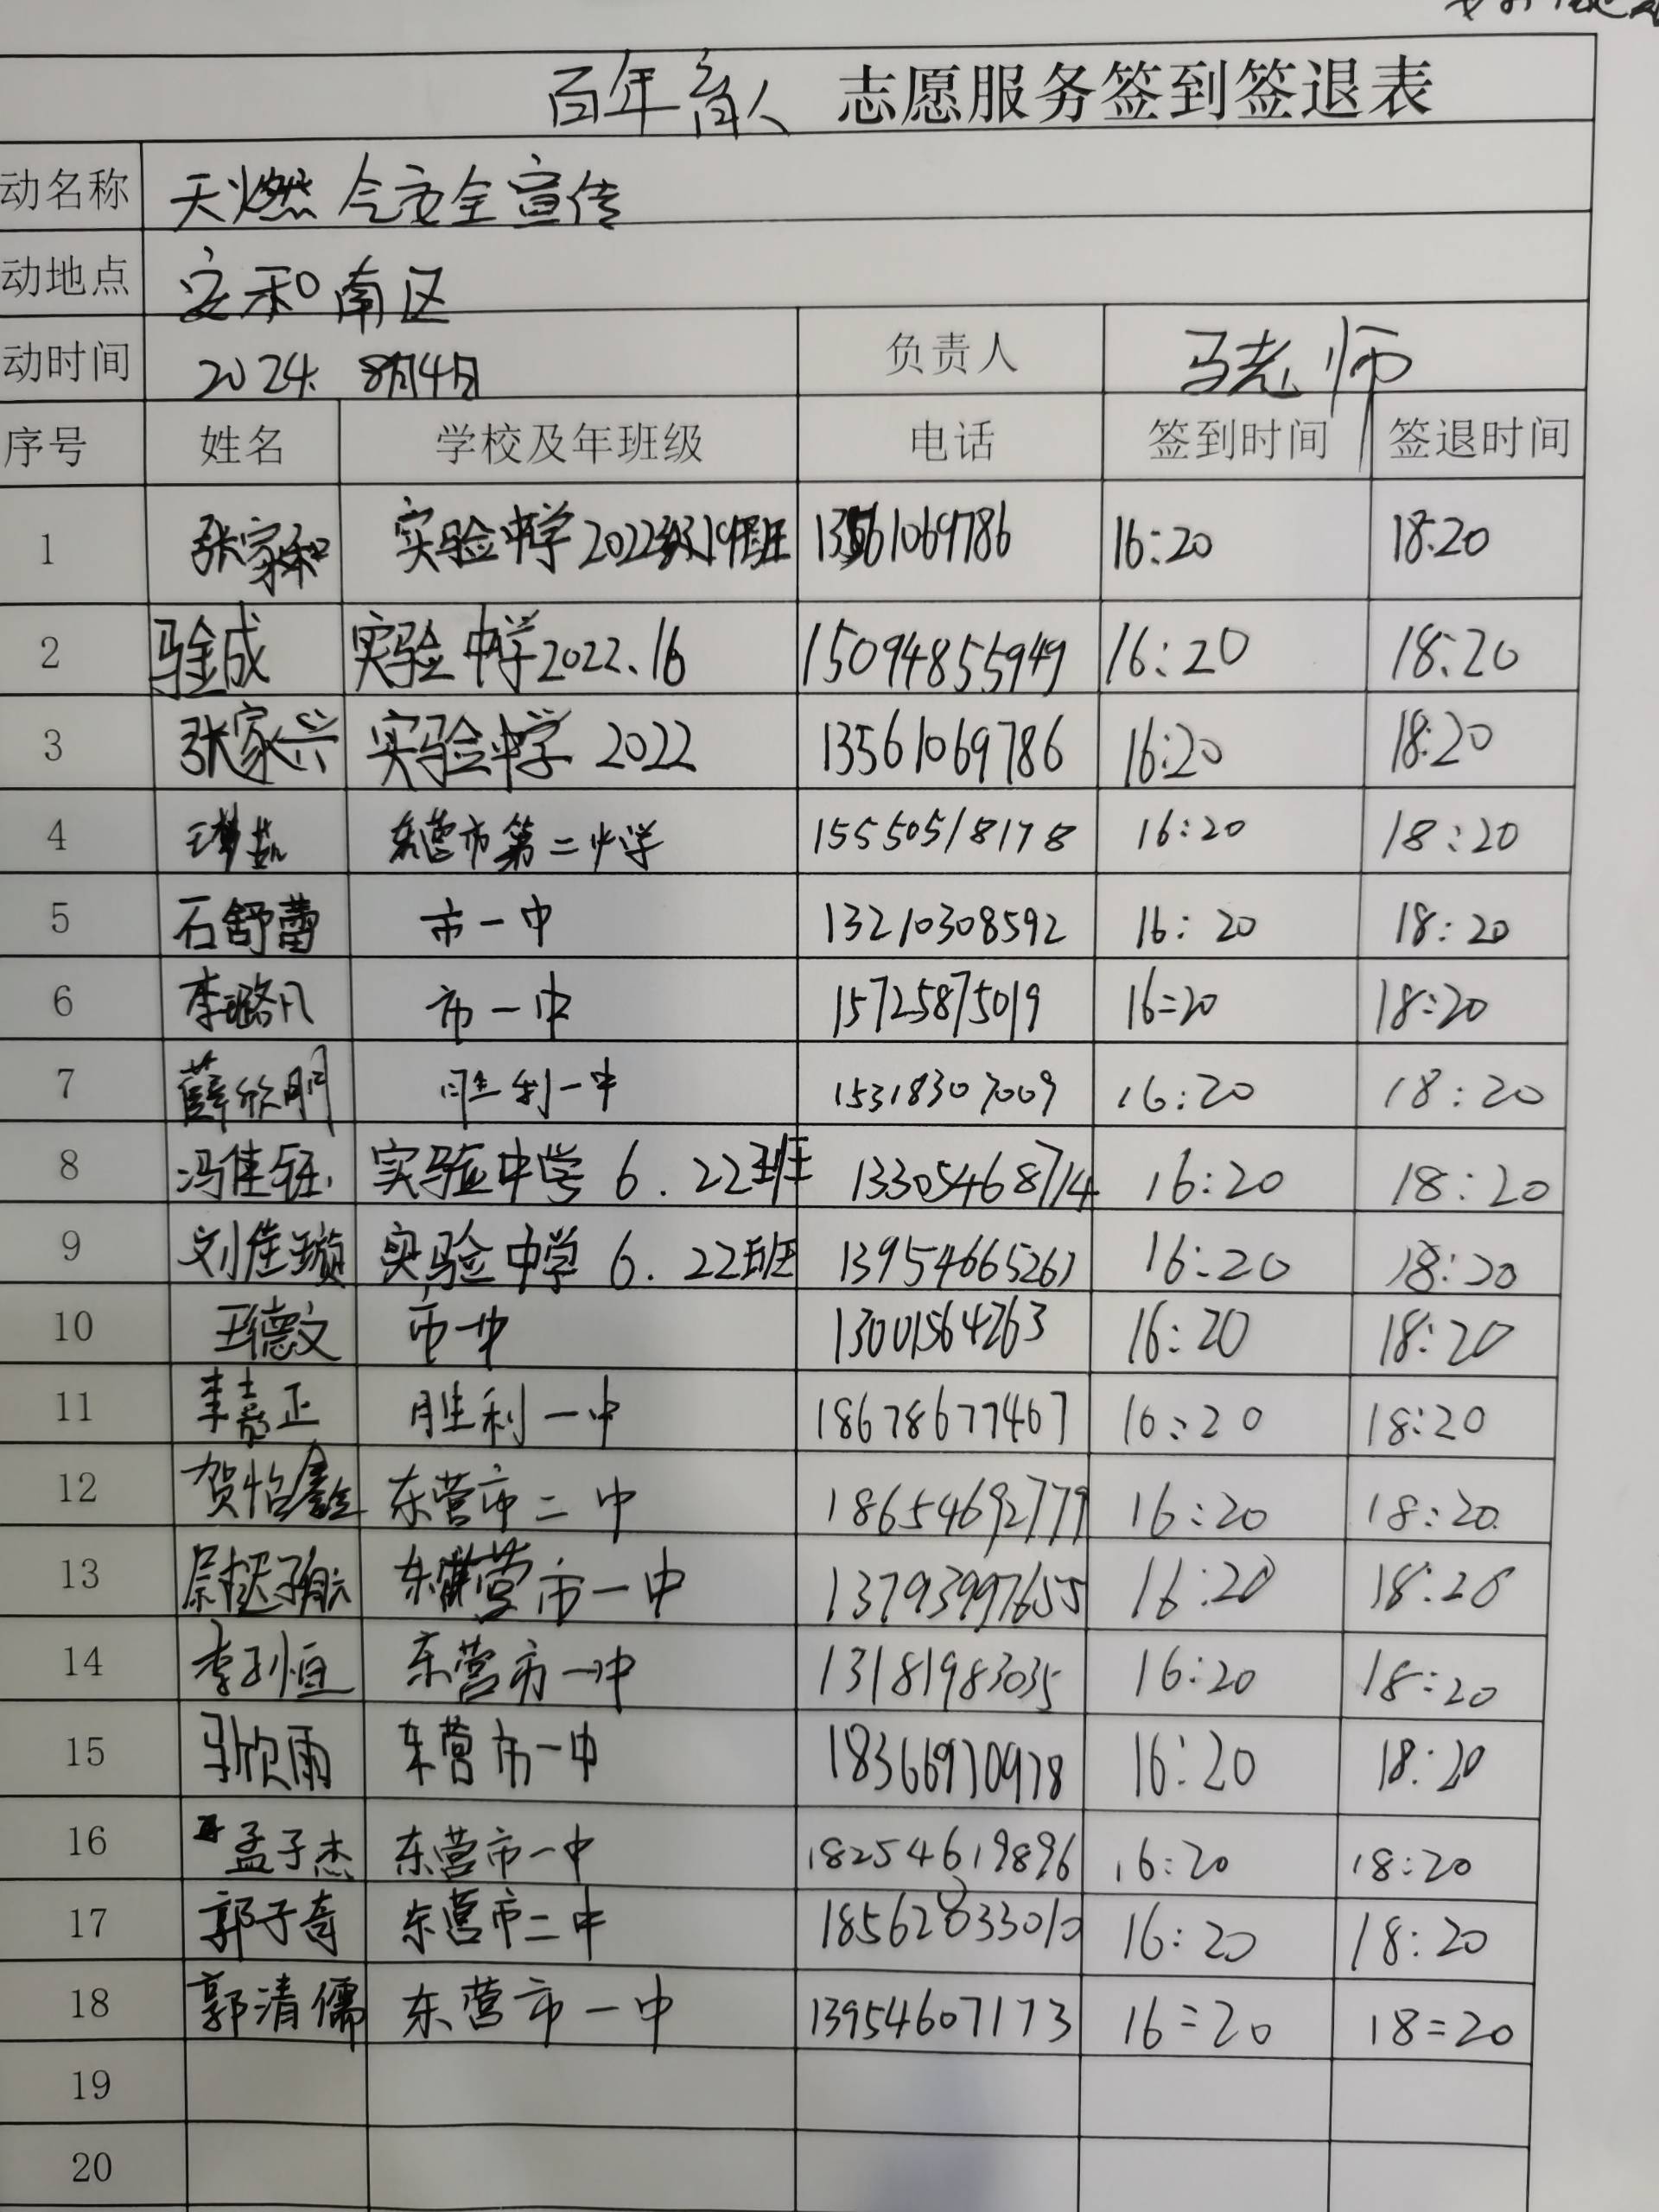 百年育人 志愿服务签到签退表
动名称 天燃气安全宣传
动地点 安和南区
动时间 2024. 8月4日 负责人 马老师
序号 姓名 学校及年班级 电话 签到时间 签退时间
1 张家和 实验中学2022级 班 13561069786 16:20 18:20
2 实验中学2022.16 15094855949 16:20 18:20
3 张家兴 实验中学 2022 13561069786 16:20 18:20
4 东营市第二中学 15550518178 16:20 18:20
5 石舒蕾 市一中 13210308592 16:20 18:20
6 李璐凡 市一中 15725875019 16:20 18:20
7 薛欣玥 胜利一中 15318307009 16:20 18:20
8 冯佳钰 实验中学 6.22班 13305468714 16:20 18:20
9 刘佳璇 实验中学 6.22班 13954665261 16:20 18:20
10 王德文 市一中 13001564263 16:20 18:20
11 李嘉正 胜利一中 18678677467 16:20 18:20
12 贺怡鑫 东营市二中 18654692779 16:20 18:20
13 东营市一中 13793997655 16:20 18:20
14 李恒 东营市一中 13181983035 16:20 18:20
15 马欣雨 东营市一中 18366970978 16:20 18:20
16 孟子杰 东营市一中 18254619896 16:20 18:20
17 郭子奇 东营市二中 18562833010 16:20 18:20
18 郭清儒 东营市一中 13954607173 16:20 18:20
19
20